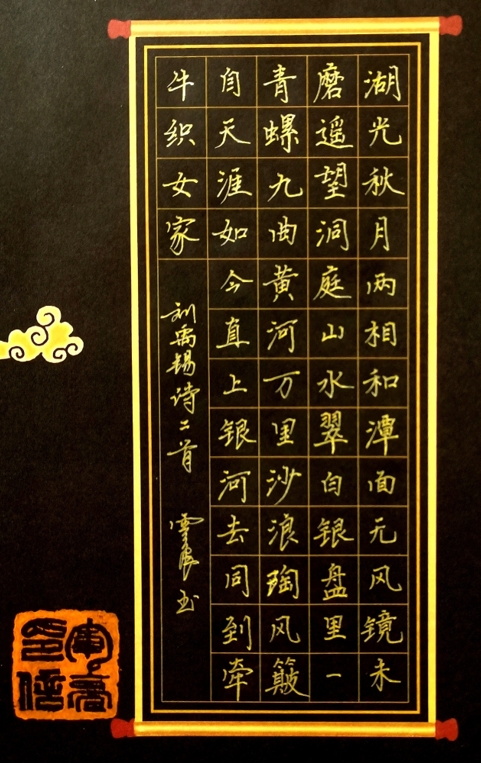 湖光秋月两相和潭面无风镜未
磨遥望洞庭山水翠白银盘里一
青螺九曲黄河万里沙浪淘风簸
自天涯如今直上银河去同到牵
牛织女家
刘禹锡诗二首